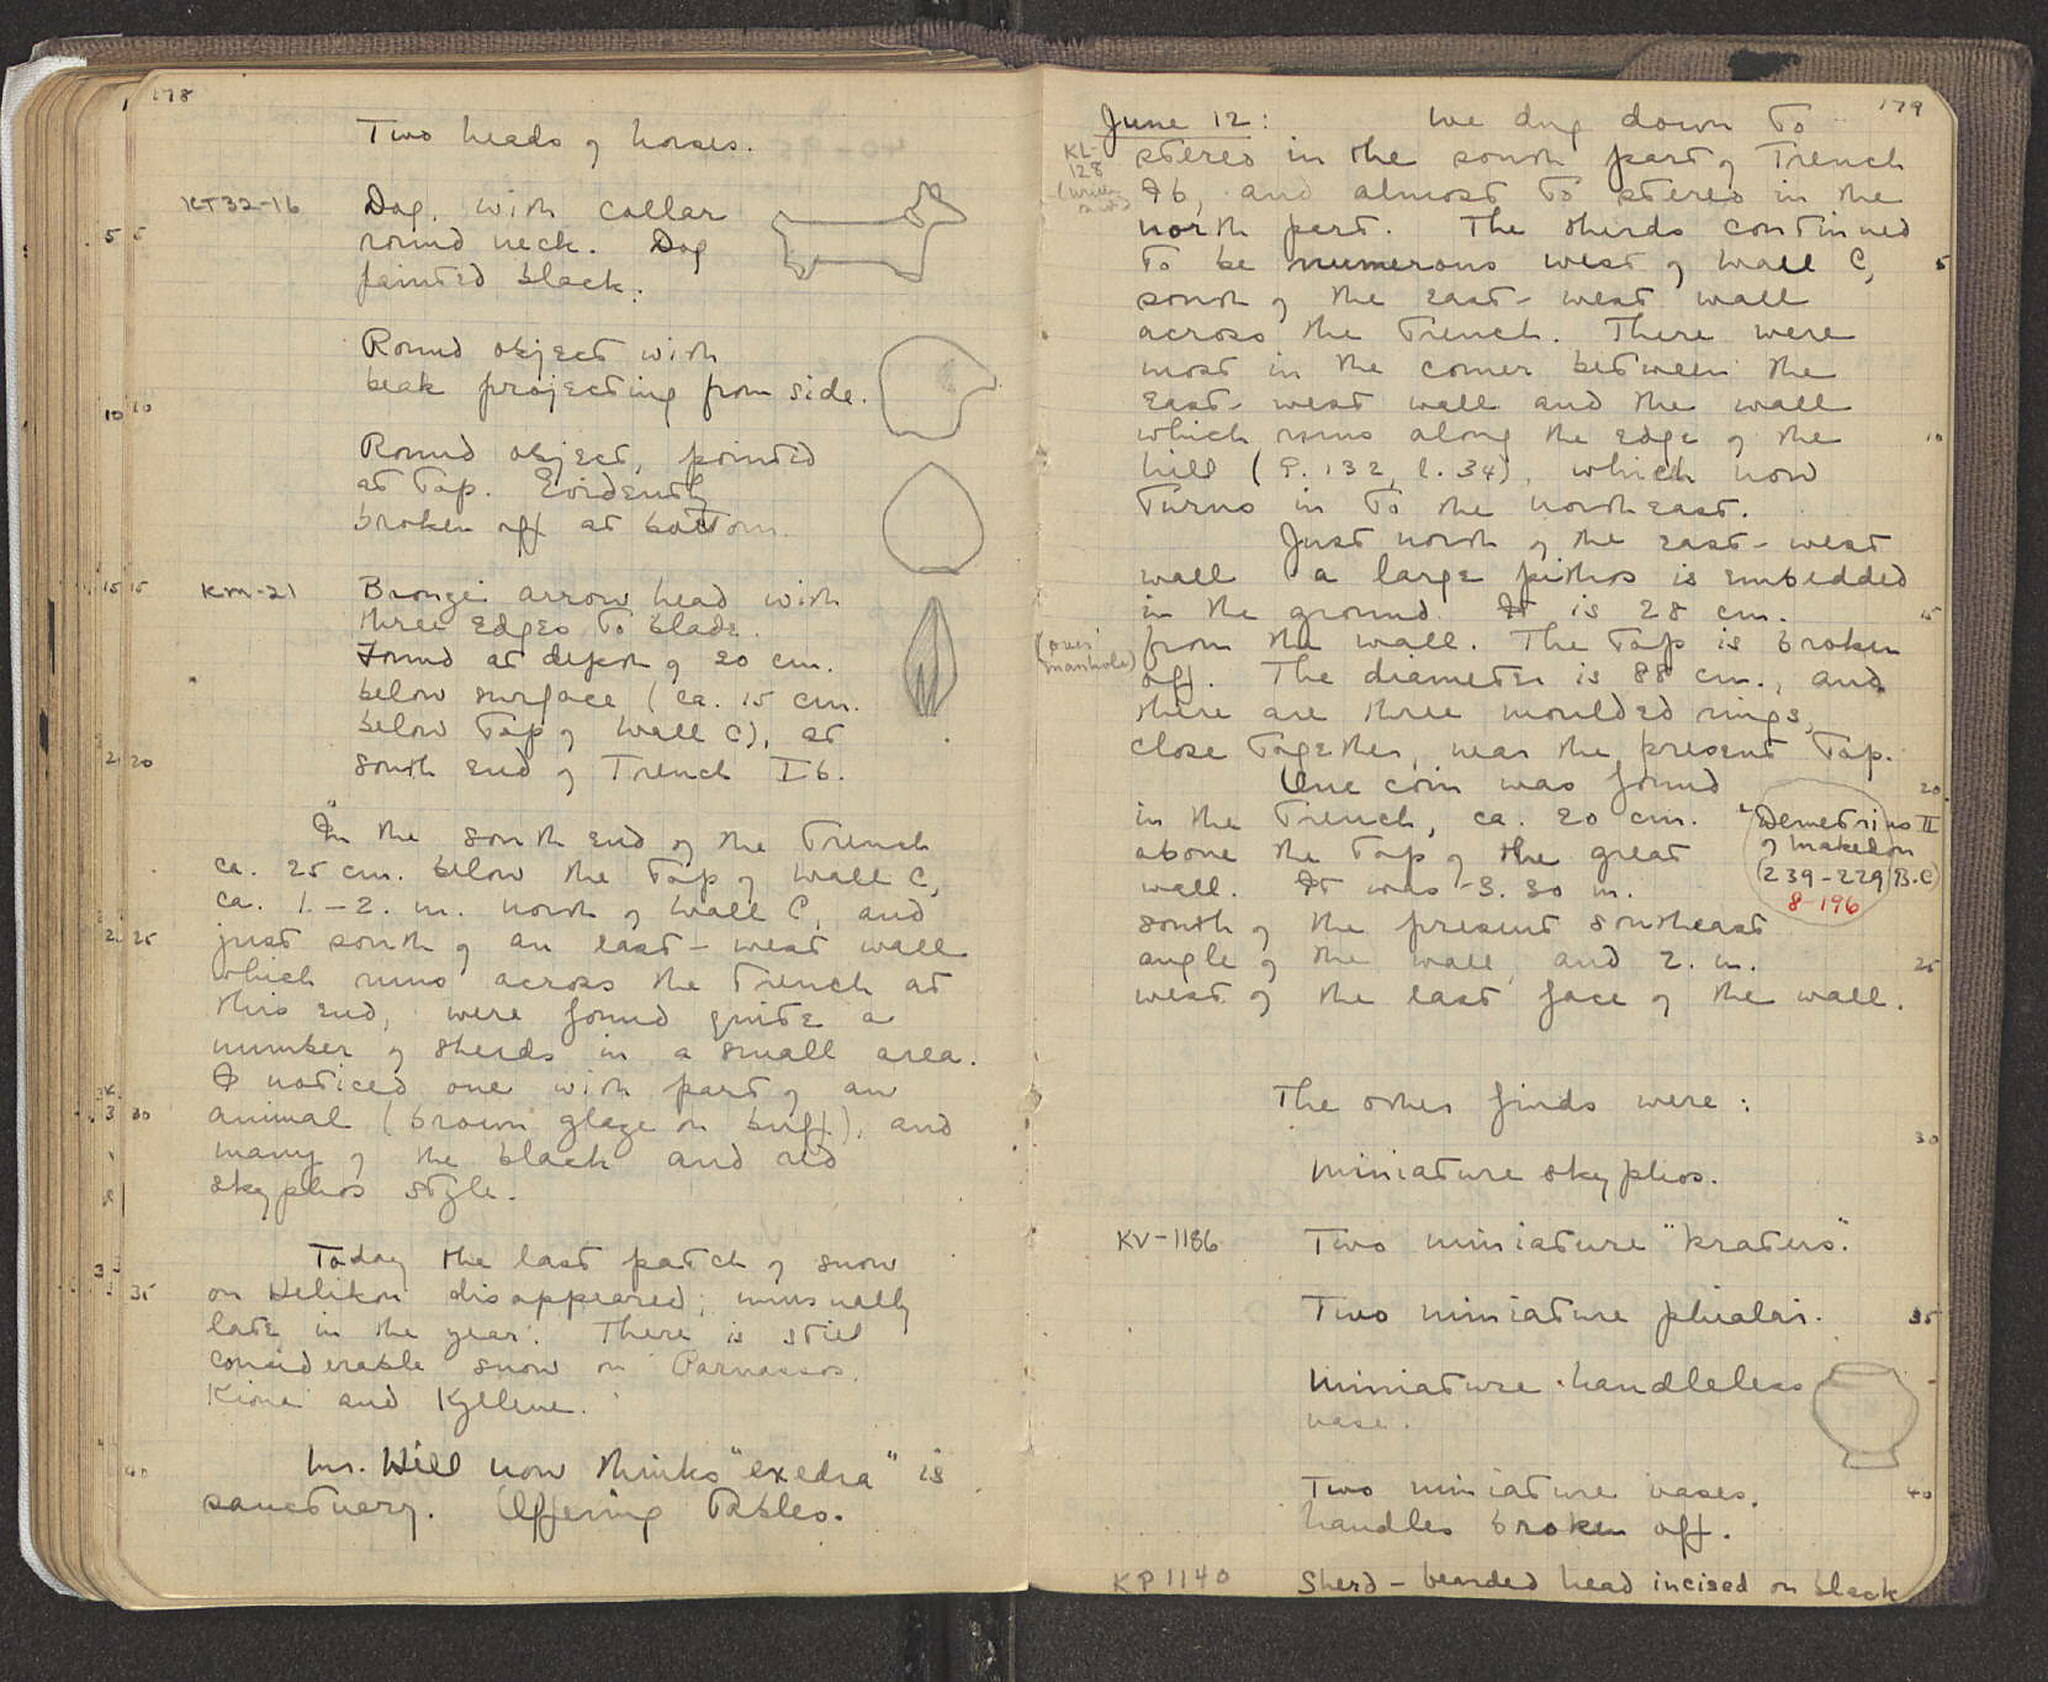 178
Two heads of horses.
KT32-16
Dog, with collar
round neck. Dog
5
painted black.
Round object with
beak projecting from side.
10
Round object, pointed
at top. Evidently
broken off at bottom.
15
KM-21
Bronze arrow head with
three edges to blade.
Found at depth of 20 cm.
below surface (ca. 15 cm.
below top of Wall C), at
20
south end of Trench Ib.
In the south end of the trench
ca. 25 cm. below the top of Wall C,
ca. 1.-2. m. north of Wall C, and
25
just south of an east-west wall
which runs across the trench at
this end, were found quite a
number of sherds in a small area.
I noticed one with part of an
30
animal (brown glaze on buff), and
many of the black and red
skyphos style.
Today the last patch of snow
35
on Helikon disappeared; unusually
late in the year. There is still
considerable snow on Parnassos,
Kiona and Kyllene.
40
Mr. Hill now thinks "exedra" is
sanctuary. Offering Tables.
179
June 12: We dug down to
KL-
128
stereo in the south part of Trench
Ib, and almost to stereo in the
north part. The sherds continued
to be numerous west of Wall C,
5
south of the east-west wall
across the trench. There were
most in the corner between the
east-west wall and the wall
which runs along the edge of the
10
hill (P. 132, l. 34), which now
turns in to the northeast.
Just north of the east-west
wall a large pithos is embedded
in the ground. It is 28 cm.
15
(over
manhole)
from the wall. The top is broken
off. The diameter is 88 cm., and
there are three moulded rings,
close together, near the present top.
One coin was found
20
in the trench, ca. 20 cm.
above the top of the great
wall. It was 3.30 m.
Demetrius II
of Makedon
(239-229 B.C)
8-196
south of the present southeast
angle of the wall, and 2. m.
25
west of the east face of the wall.
The other finds were:
30
Miniature skyphos.
KV-1186
Two miniature "kraters."
Two miniature phialai.
35
Miniature handleless
vase.
Two miniature vases,
40
handles broken off.
KP1140
Sherd - bearded head incised on black